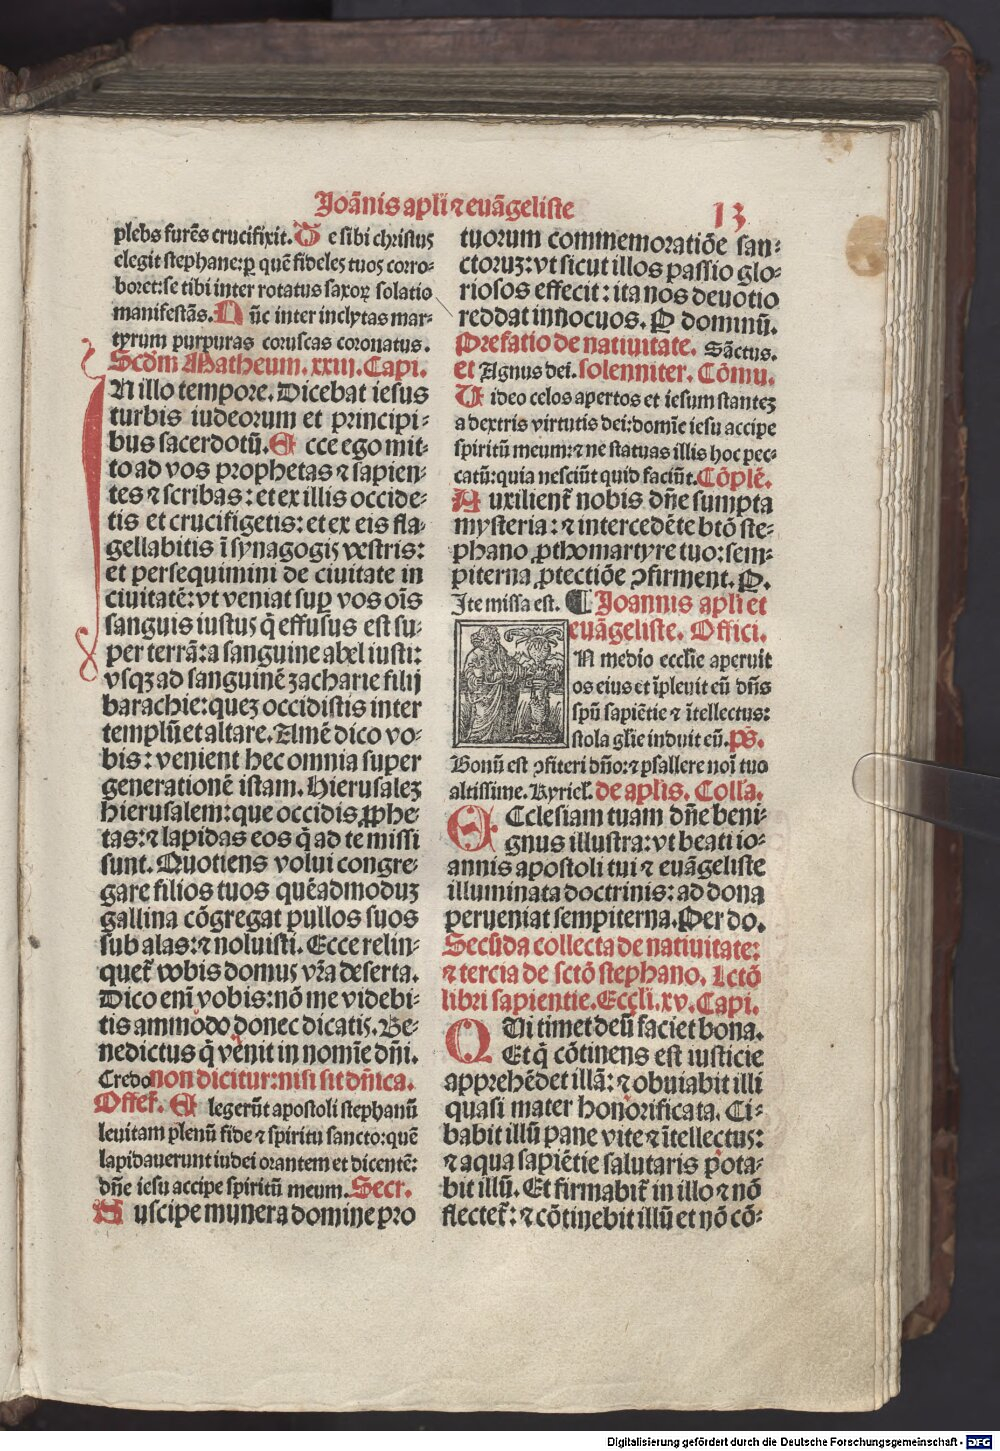 Joãnis apl̃i ⁊ euãgeliste 13
plebs furẽs crucifixit. Te sibi christus
elegit stephane: ꝑ quẽ fideles tuos corro-
boret: se tibi inter rotatus saxoꝝ solatio
manifestãs. Nũc inter inclytas mar-
tyrum purpuras coruscas coronatus.
Scđm Matheum. xxiij. Capi.
IN illo tempore. Dicebat iesus
turbis iudeorum et principi-
bus sacerdotũ. Ecce ego mit-
to ad vos prophetas ⁊ sapien-
tes ⁊ scribas: et ex illis occide-
tis et crucifigetis: et ex eis fla-
gellabitis ĩ synagogis vestris:
et persequimini de ciuitate in
ciuitatẽ: vt veniat suꝑ vos oĩs
sanguis iustus q̃ effusus est su-
per terrã: a sanguine abel iusti:
vsqꝫ ad sanguinẽ zacharie filij
barachie: queꝫ occidistis inter
templũ et altare. Amẽ dico vo-
bis: venient hec omnia super
generationẽ istam. Hierusaleꝫ
hierusalem: que occidis ꝓphe-
tas: ⁊ lapidas eos q̃ ad te missi
sunt. Quotiens volui congre-
gare filios tuos quẽadmoduꝫ
gallina cõgregat pullos suos
sub alas: ⁊ noluisti. Ecce relin-
quet᷑ vobis domus vr̃a deserta.
Dico enĩ vobis: nõ me videbi-
tis ammodo donec dicatis. Be-
nedictus q̃ venit in nomĩe dñi.
Credo non dicitur: nisi sit dñica.
Offer̃. Elegerũt apostoli stephanũ
leuitam plenũ fide ⁊ spiritu sancto: quẽ
lapidauerunt iudei orantem et dicentẽ:
dñe iesu accipe spiritũ meum. Secr.
Suscipe munera domine pro
tuorum commemoratiõe san-
ctoruꝫ: vt sicut illos passio glo-
riosos effecit: ita nos deuotio
reddat innocuos. P dominũ.
Prefatio de natiuitate. Sãctus.
et Agnus dei. solenniter. Cõmu.
Video celos apertos et iesum stanteꝫ
a dextris virtutis dei: domĩe iesu accipe
spiritũ meum: ⁊ ne statuas illis hoc pec-
catũ: quia nesciũt quid faciũt. Cõplẽ.
Auxilient᷑ nobis dñe sumpta
mysteria: ⁊ intercedẽte btõ ste-
phano ꝓthomartyre tuo: sem-
piterna ꝓtectiõe ꝯfirment. P.
Ite missa est. ¶ Joannis apl̃i et
euãgeliste. Offici.
IN medio ecclĩe aperuit
os eius et ĩpleuit eũ dñs
spũ sapiẽtie ⁊ ĩtellectus:
stola gl̃ie induit eũ. Ps̃.
Bonũ est ꝯfiteri dño: ⁊ psallere noĩ tuo
altissime. Kyriel̃. de apl̃is. Coll̃a.
ECclesiam tuam dñe beni-
gnus illustra: vt beati io-
annis apostoli tui ⁊ euãgeliste
illuminata doctrinis: ad dona
perueniat sempiterna. Per do.
Secũda collecta de natiuitate:
⁊ tercia de sctõ stephano. Lctõ
libri sapientie. Eccl̃i. xv. Capi.
QUi timet deũ faciet bona.
Et q̃ cõtinens est iusticie
apprehẽdet illã: ⁊ obuiabit illi
quasi mater honorificata. Ci-
babit illũ pane vite ⁊ ĩtellectus:
⁊ aqua sapiẽtie salutaris pota-
bit illũ. Et firmabit᷑ in illo ⁊ nõ
flectet᷑: ⁊ cõtinebit illũ et nõ cõ-
Digitalisierung gefördert durch die Deutsche Forschungsgemeinschaft - DFG